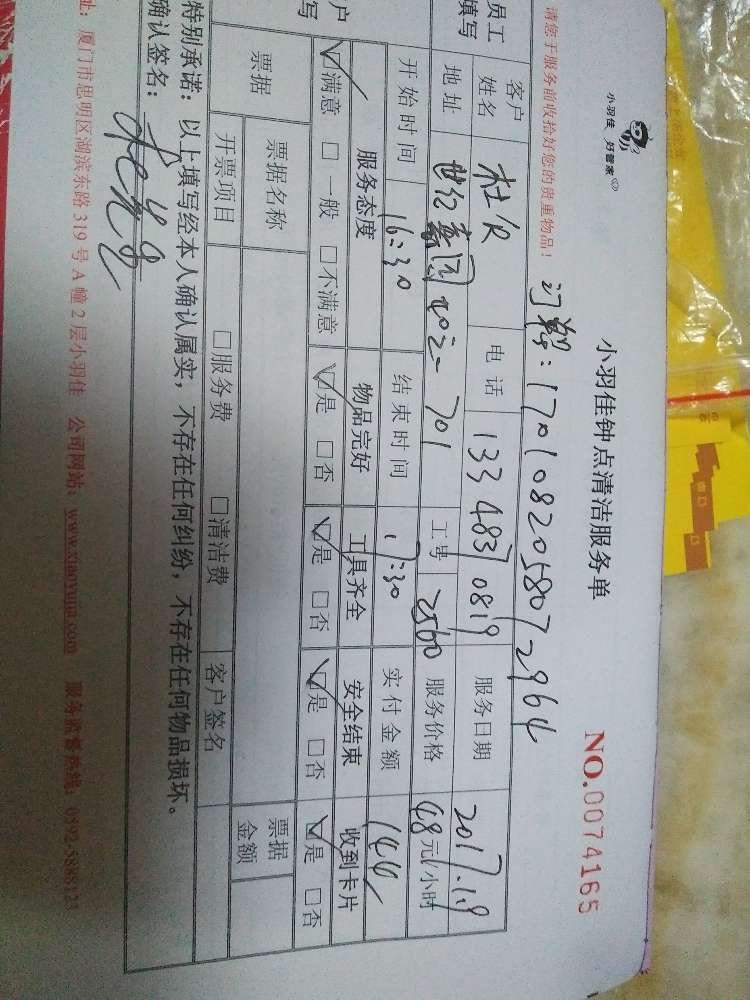 小羽佳 好管家
小羽佳钟点清洁服务单
NO.0074165
请您于服务前收拾好您的贵重物品!
订单:1701082058072964
员工填写
客户姓名
电话 133 4837 0819
服务日期 2017.1.9
地址
工号 2560
服务价格 48元/小时
开始时间 16:30
结束时间 17:30
实付金额 144
户
写
服务态度 物品完好 工具齐全 安全结束 收到卡片
☑满意 □一般 □不满意 ☑是 □否 ☑是 □否 ☑是 □否 ☑是 □否
票据 票据名称 票据金额
开票项目 □服务费 □清洁费 客户签名
特别承诺:以上填写经本人确认属实,不存在任何纠纷,不存在任何物品损坏。
确认签名:
址:厦门市思明区湖滨东路319号A幢2层小羽佳 公司网站:www.xiaoyujia.com 服务监督热线:0592-5888123